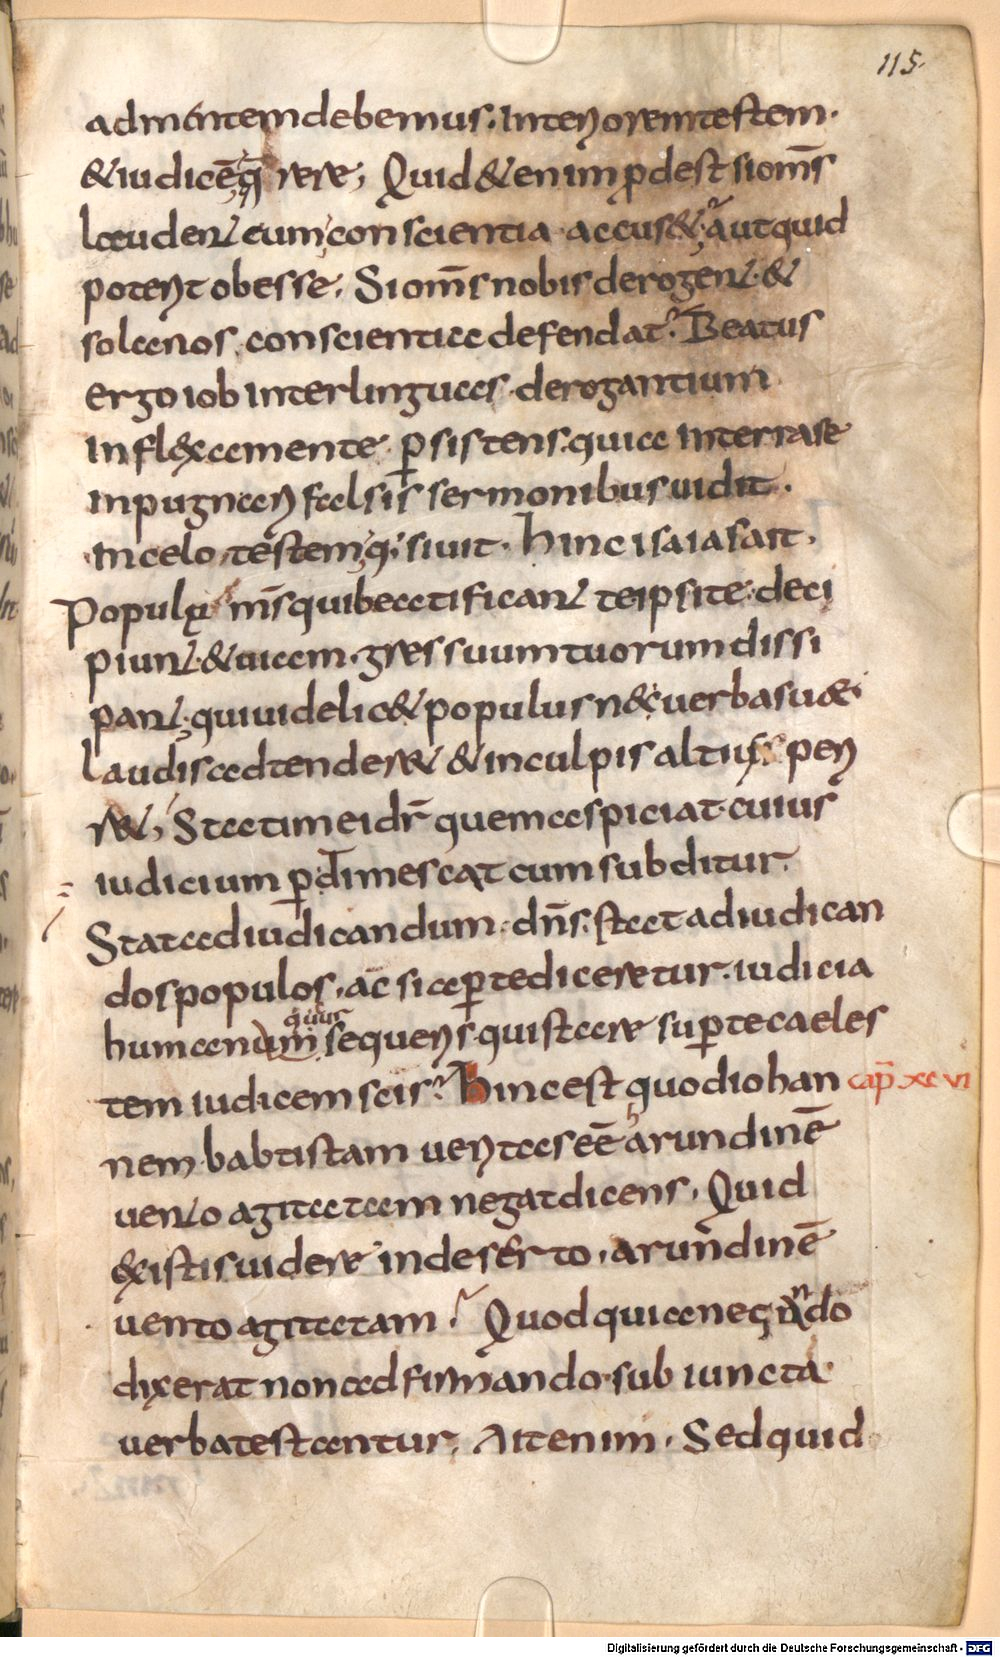 115.
ad mentem debemus. Interiorem testem.
& iudicē q̄rere; Quid & enim ꝓdest si om̄s
laudent cum conscientia accus&? aut quid
poterit obesse. Si om̄s nobis derogent &
sola nos conscientia defendat? Beatus
ergo iob inter linguas derogantium
inflexa mente ꝑsistens. quia in terra se
inpugnari falsis sermonibus uidit.
in celo testem q̇siuit. hinc isaias ait.
Popule m̄s qui beatificant te ipsi te deci
piunt. & uiam gressuum tuorum dissi
pant. qui uidelic& populus nec uerba suae
laudis adtender& & in culpis altius peri
r&; Statim ei dr̄ quem aspiciat cuius
iudicium ꝑtimescat cum subditur.
Stat ad iudicandum dn̄s. stat ad iudican
dos populos. ac si aꝑte diceretur. iudicia
humanum quur sequeris qui stare suꝑ te caeles
tem iudicem scis? Hinc est quod iohan cap̄ xc vi
nem babtistam ueritas eē harundinē
uento agitatam negat dicens. Quid
existis uidere in deserto. arundinē
uento agitatam? Quod quia negando
dixerat non adfirmando. sub iuncta
uerba testantur. Ait enim. Sed quid
Digitalisierung gefördert durch die Deutsche Forschungsgemeinschaft - DFG